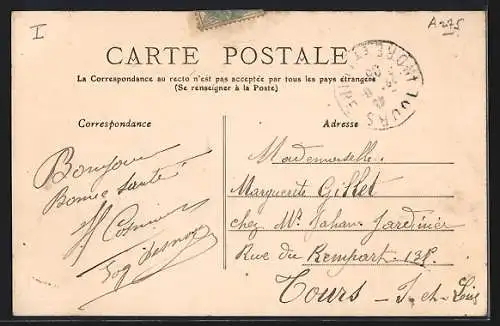 I
A 275
CARTE POSTALE
La Correspondance au recto n'est pas acceptée par tous les pays étrangers
(Se renseigner à la Poste)
TOURS
INDRE ET LOIRE
Correspondance
Adresse
Bonjour
Bonne Santé
Mademoiselle
Marguerite Gillet
chez Mr Jahan Jardinier
Rue du Rempart
Tours - I-et-Loire